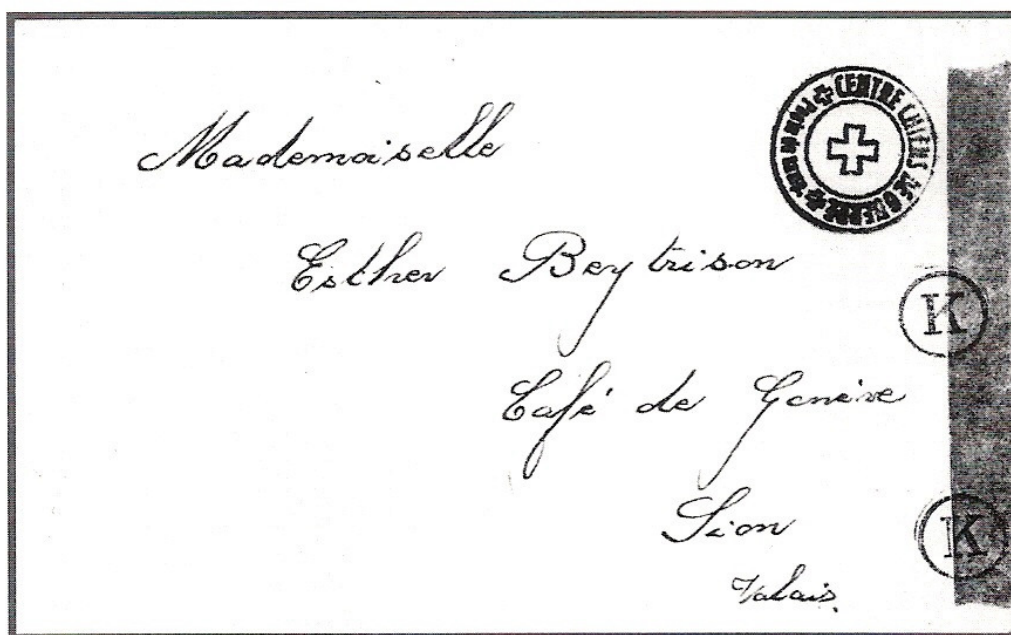 Mademoiselle
Esther Beytrison
Café de Genève
Sion
Valais.
CENTRE CHIENS DE GUERRE
K
K